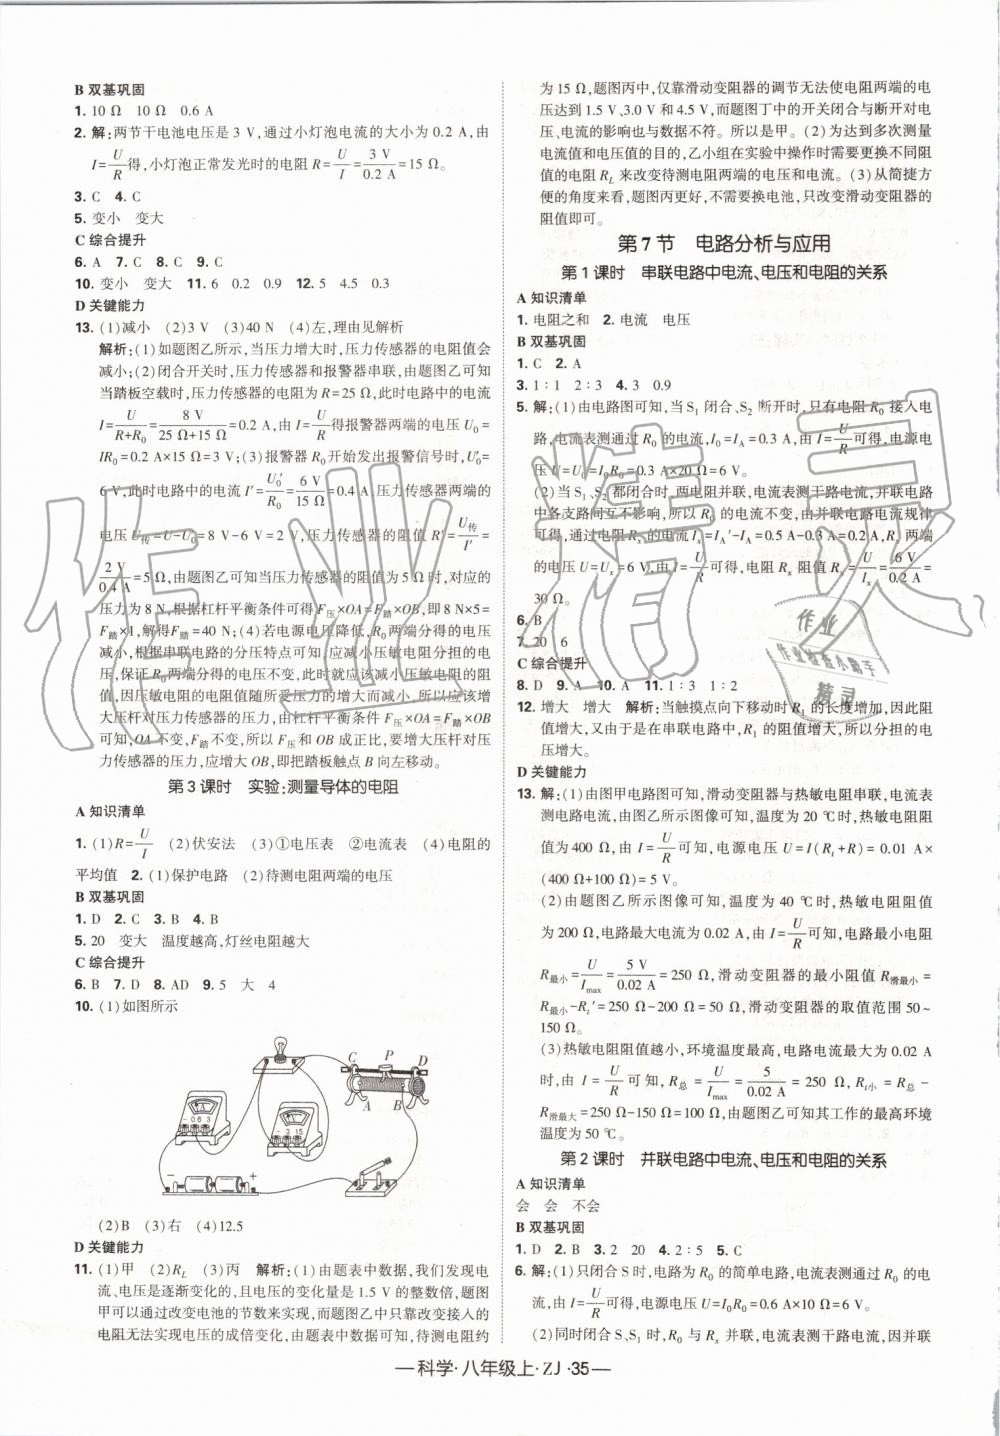 B 双基巩固
1. 10 Ω　10 Ω　0.6 A
2. 解:两节干电池电压是 3 V,通过小灯泡电流的大小为 0.2 A,由
I=U/R得,小灯泡正常发光时的电阻 R=U/I=3 V/0.2 A=15 Ω。
3. C　4. C
5. 变小　变大
C 综合提升
6. A　7. C　8. C　9. C
10. 变小　变大　11. 6　0.2　0.9　12. 5　4.5　0.3
D 关键能力
13. (1)减小　(2)3 V　(3)40 N　(4)左,理由见解析
解析:(1)如题图乙所示,当压力增大时,压力传感器的电阻值会
减小;(2)闭合开关时,压力传感器和报警器串联,由题图乙可知
当踏板空载时,压力传感器的电阻为 R=25 Ω,此时电路中的电流
I=U/(R+R₀)=8 V/(25 Ω+15 Ω)=0.2 A,由 I=U/R得报警器两端的电压 U₀=
IR₀=0.2 A×15 Ω=3 V;(3)报警器 R₀开始发出报警信号时,U₀′=
6 V,此时电路中的电流 I′=U₀′/R₀=6 V/15 Ω=0.4 A,压力传感器两端的
电压 U传=U-U₀′=8 V-6 V=2 V,压力传感器的阻值 R′=U传/I′=
2 V/0.4 A=5 Ω,由题图乙可知当压力传感器的阻值为 5 Ω时,对应的
压力为 8 N,根据杠杆平衡条件可得 F压×OA=F踏×OB,即 8 N×5=
F踏×1,解得F踏=40 N;(4)若电源电压降低,R₀两端分得的电压
减小,根据串联电路的分压特点可知,应减小压敏电阻分担的电
压,保证 R₀两端分得的电压不变,此时就应该减小压敏电阻的阻
值,因压敏电阻的电阻值随所受压力的增大而减小,所以应该增
大压杆对压力传感器的压力,由杠杆平衡条件 F压×OA=F踏×OB
可知,OA 不变,F踏不变,所以 F压和 OB 成正比,要增大压杆对压力
传感器的压力,应增大 OB,即把踏板触点 B 向左移动。
第 3 课时　实验:测量导体的电阻
A 知识清单
1. (1)R=U/I　(2)伏安法　(3)①电压表　②电流表　(4)电阻的
平均值　2. (1)保护电路　(2)待测电阻两端的电压
B 双基巩固
1. D　2. C　3. B　4. B
5. 20　变大　温度越高,灯丝电阻越大
C 综合提升
6. B　7. D　8. AD　9. 5　大　4
10. (1)如图所示
C　P　D
A　B
-　0.6　3
-　3　15
-　+
(2)B　(3)右　(4)12.5
D 关键能力
11. (1)甲　(2)R_L　(3)丙　解析:(1)由题表中数据,我们发现电
流、电压是逐渐变化的,且电压的变化量是 1.5 V 的整数倍,题图
甲可以通过改变电池的节数来实现,而题图乙中只靠改变接入的
电阻无法实现电压的成倍变化,由题表中数据可知,待测电阻约
为 15 Ω,题图丙中,仅靠滑动变阻器的调节无法使电阻两端的电
压达到 1.5 V、3.0 V 和 4.5 V,而题图丁中的开关闭合与断开对电
压、电流的影响也与数据不符。所以是甲。(2)为达到多次测量
电流值和电压值的目的,乙小组在实验中操作时需要更换不同阻
值的电阻 R_L 来改变待测电阻两端的电压和电流。(3)从简捷方
便的角度来看,题图丙更好,不需要换电池,只改变滑动变阻器的
阻值即可。
第 7 节　电路分析与应用
第 1 课时　串联电路中电流、电压和电阻的关系
A 知识清单
1. 电阻之和　2. 电流　电压
B 双基巩固
1. C　2. A
3. 1∶1　2∶3　4. 3　0.9
5. 解:(1)由电路图可知,当 S₁ 闭合、S₂ 断开时,只有电阻 R₀ 接入电
路,电流表测通过 R₀ 的电流,I₀=I_A=0.3 A,由 I=U/R可得,电源电
压 U=U₀=I₀R₀=0.3 A×20 Ω=6 V。
(2)当 S₁、S₂ 都闭合时,两电阻并联,电流表测干路电流,并联电路
中各支路间互不影响,所以 R₀ 的电流不变,由并联电路电流规律
可得,通过电阻 Rₓ的电流 Iₓ=I_A′-I_A=0.5 A-0.3 A=0.2 A,Rₓ两端
的电压 U=Uₓ=6 V,由 I=U/R可得,电阻 Rₓ 阻值 Rₓ=U/Iₓ=6 V/0.2 A=
30 Ω。
6. B
7. 20　6
C 综合提升
8. D　9. A　10. A　11. 1∶3　1∶2
12. 增大　增大　解析:当触摸点向下移动时 R₁ 的长度增加,因此阻
值增大,又由于在串联电路中,R₁ 的阻值增大,所以分担的电
压增大。
D 关键能力
13. 解:(1)由图甲电路图可知,滑动变阻器与热敏电阻串联,电流表
测电路电流,由图乙所示图像可知,温度为 20 ℃时,热敏电阻阻
值为 400 Ω,由 I=U/R可知,电源电压 U=I(Rₜ+R)=0.01 A×
(400 Ω+100 Ω)=5 V。
(2)由题图乙所示图像可知,温度为 40 ℃时,热敏电阻阻值
为 200 Ω,电路最大电流为 0.02 A,由 I=U/R可知,电路最小电阻
R最小=U/I_max=5 V/0.02 A=250 Ω,滑动变阻器的最小阻值 R滑最小=
R最小-Rₜ′=250 Ω-200 Ω=50 Ω,滑动变阻器的取值范围 50~
150 Ω。
(3)热敏电阻阻值越小,环境温度最高,电路电流最大为 0.02 A
时,由 I=U/R可知,R总=U/I_max=5/0.02 A=250 Ω,Rₜ小=R总-
R滑最大=250 Ω-150 Ω=100 Ω,由题图乙可知其工作的最高环境
温度为 50 ℃。
第 2 课时　并联电路中电流、电压和电阻的关系
A 知识清单
会　会　不会
B 双基巩固
1. D　2. B　3. 2　20　4. 2∶5　5. C
6. 解:(1)只闭合 S 时,电路为 R₀ 的简单电路,电流表测通过 R₀ 的电
流,由 I=U/R可得,电源电压 U=I₀R₀=0.6 A×10 Ω=6 V。
(2)同时闭合 S、S₁ 时,R₀ 与 Rₓ 并联,电流表测干路电流,因并联
—科学·八年级上·ZJ·35—
作业精灵
作业
作业检查小帮手
精灵